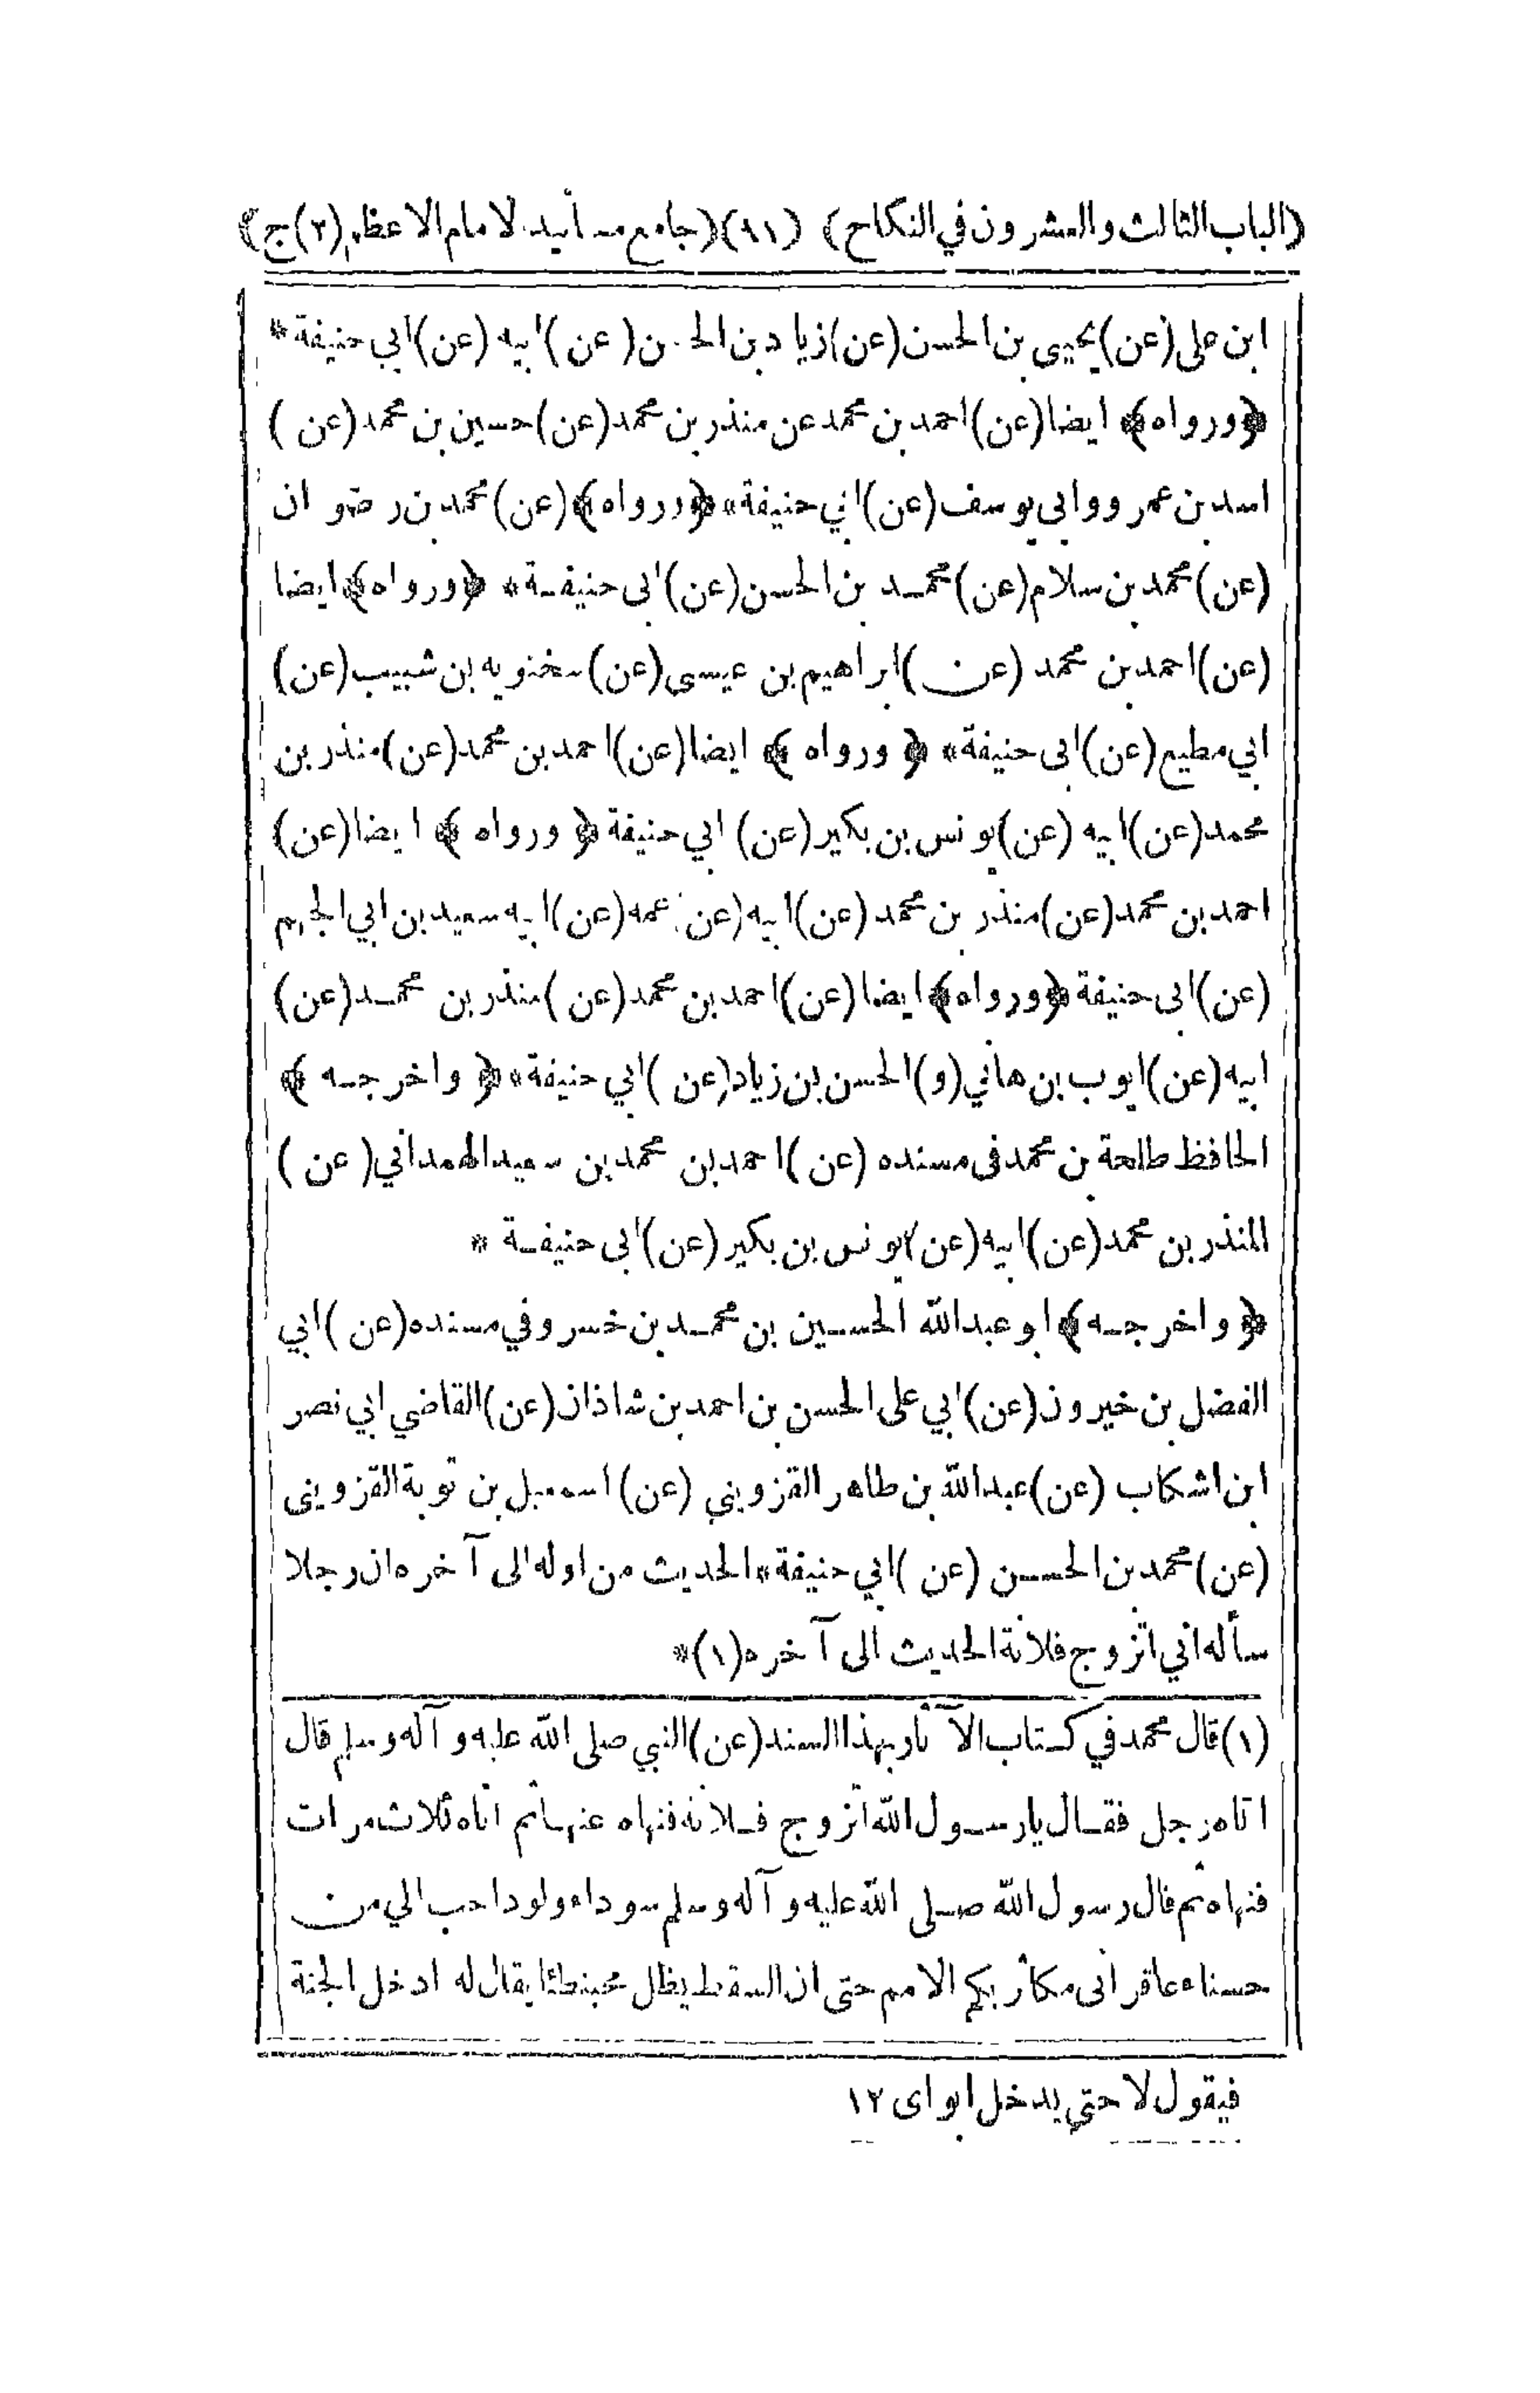 (الباب الثالث والعشرون في النكاح) (٩١) (جامع مسانيد الامام الاعظم (٢) ج)
ابن على (عن) يحيى بن الحسن (عن) زياد بن الحسن (عن) ابيه (عن) ابي حنيفة *
﴿ ورواه ﴾ ايضا (عن) احمد بن محمد عن منذر بن محمد (عن) حسين بن محمد (عن)
اسد بن عمرو وابي يوسف (عن) ابي حنيفة * ﴿ ورواه ﴾ (عن) محمد بن رضوان
(عن) محمد بن سلام (عن) محمد بن الحسن (عن) ابى حنيفة * ﴿ ورواه ﴾ ايضا
(عن) احمد بن محمد (عن) ابراهيم بن عيسى (عن) سختويه بن شبيب (عن)
ابي مطيع (عن) ابى حنيفة * ﴿ ورواه ﴾ ايضا (عن) احمد بن محمد (عن) منذر بن
محمد (عن) ابيه (عن) يونس بن بكير (عن) ابي حنيفة ﴿ ورواه ﴾ ايضا (عن)
احمد بن محمد (عن) منذر بن محمد (عن) ابيه (عن) عمه (عن) ابيه سعيد بن ابي الجهم
(عن) ابى حنيفة ﴿ ورواه ﴾ ايضا (عن) احمد بن محمد (عن) منذر بن محمد (عن)
ابيه (عن) ايوب بن هاني (و) الحسن بن زياد (عن) ابي حنيفة * ﴿ واخرجه ﴾
الحافظ طلحة بن محمد فى مسنده (عن) احمد بن محمد بن سعيد الهمداني (عن)
المنذر بن محمد (عن) ابيه (عن) يونس بن بكير (عن) ابى حنيفة *
﴿ واخرجه ﴾ ابو عبدالله الحسين بن محمد بن خسرو في مسنده (عن) ابي
الفضل بن خيرون (عن) ابي على الحسن بن احمد بن شاذان (عن) القاضي ابي نصر
ابن اشكاب (عن) عبدالله بن طاهر القزويني (عن) اسمعيل بن توبة القزوينى
(عن) محمد بن الحسن (عن) ابي حنيفة * الحديث من اوله الى آخره ان رجلا
سأله اني اتزوج فلانة الحديث الى آخره (١) *
(١) قال محمد في كتاب الآثار بهذا السند (عن) النبي صلى الله عليه وآله وسلم قال
اتاه رجل فقال يا رسول الله اتزوج فلانة فنهاه عنها ثم اتاه ثلاث مرات
فنهاه ثم قال رسول الله صلى الله عليه وآله وسلم سوداء ولود احب الي من
حسناء عاقر انى مكاثر بكم الامم حتى ان السقط يظل محبنطئا يقال له ادخل الجنة
فيقول لا حتى يدخل ابواى ١٢